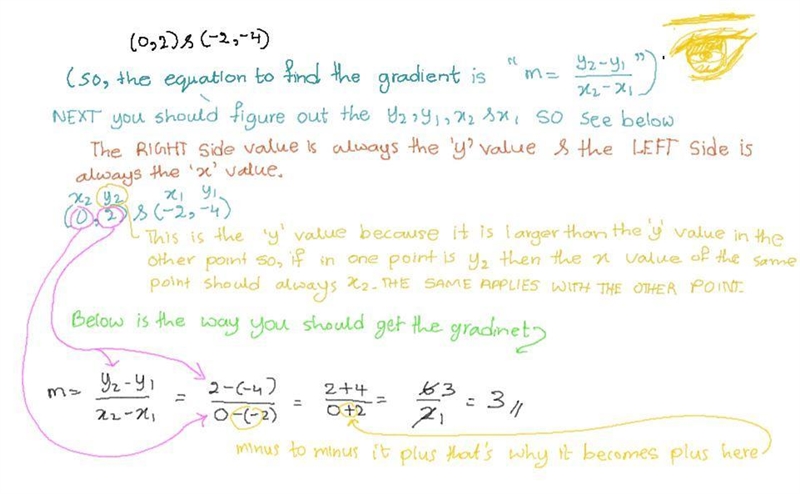 (0,2) & (-2,-4)
(so, the equation to find the gradient is " m= y₂-y₁ / x₂-x₁ ")
NEXT you should figure out the y₂, y₁, x₂ & x₁ so see below
The RIGHT side value is always the 'y' value & the LEFT side is
always the 'x' value.
x₂ y₂ x₁ y₁
(0, 2) & (-2, -4)
This is the 'y' value because it is larger than the 'y' value in the
other point so, if in one point is y₂ then the x value of the same
point should always x₂. THE SAME APPLIES WITH THE OTHER POINT.
Below is the way you should get the gradinet
m= y₂-y₁ / x₂-x₁ = 2-(-4) / 0-(-2) = 2+4 / 0+2 = 6 3 / 2 1 = 3 //
minus to minus it plus that's why it becomes plus here